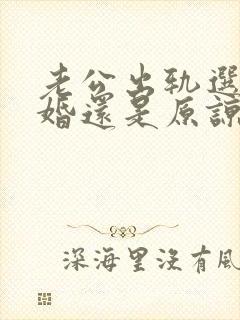 老公出轨選
婚還是原諒
深海里沒有風